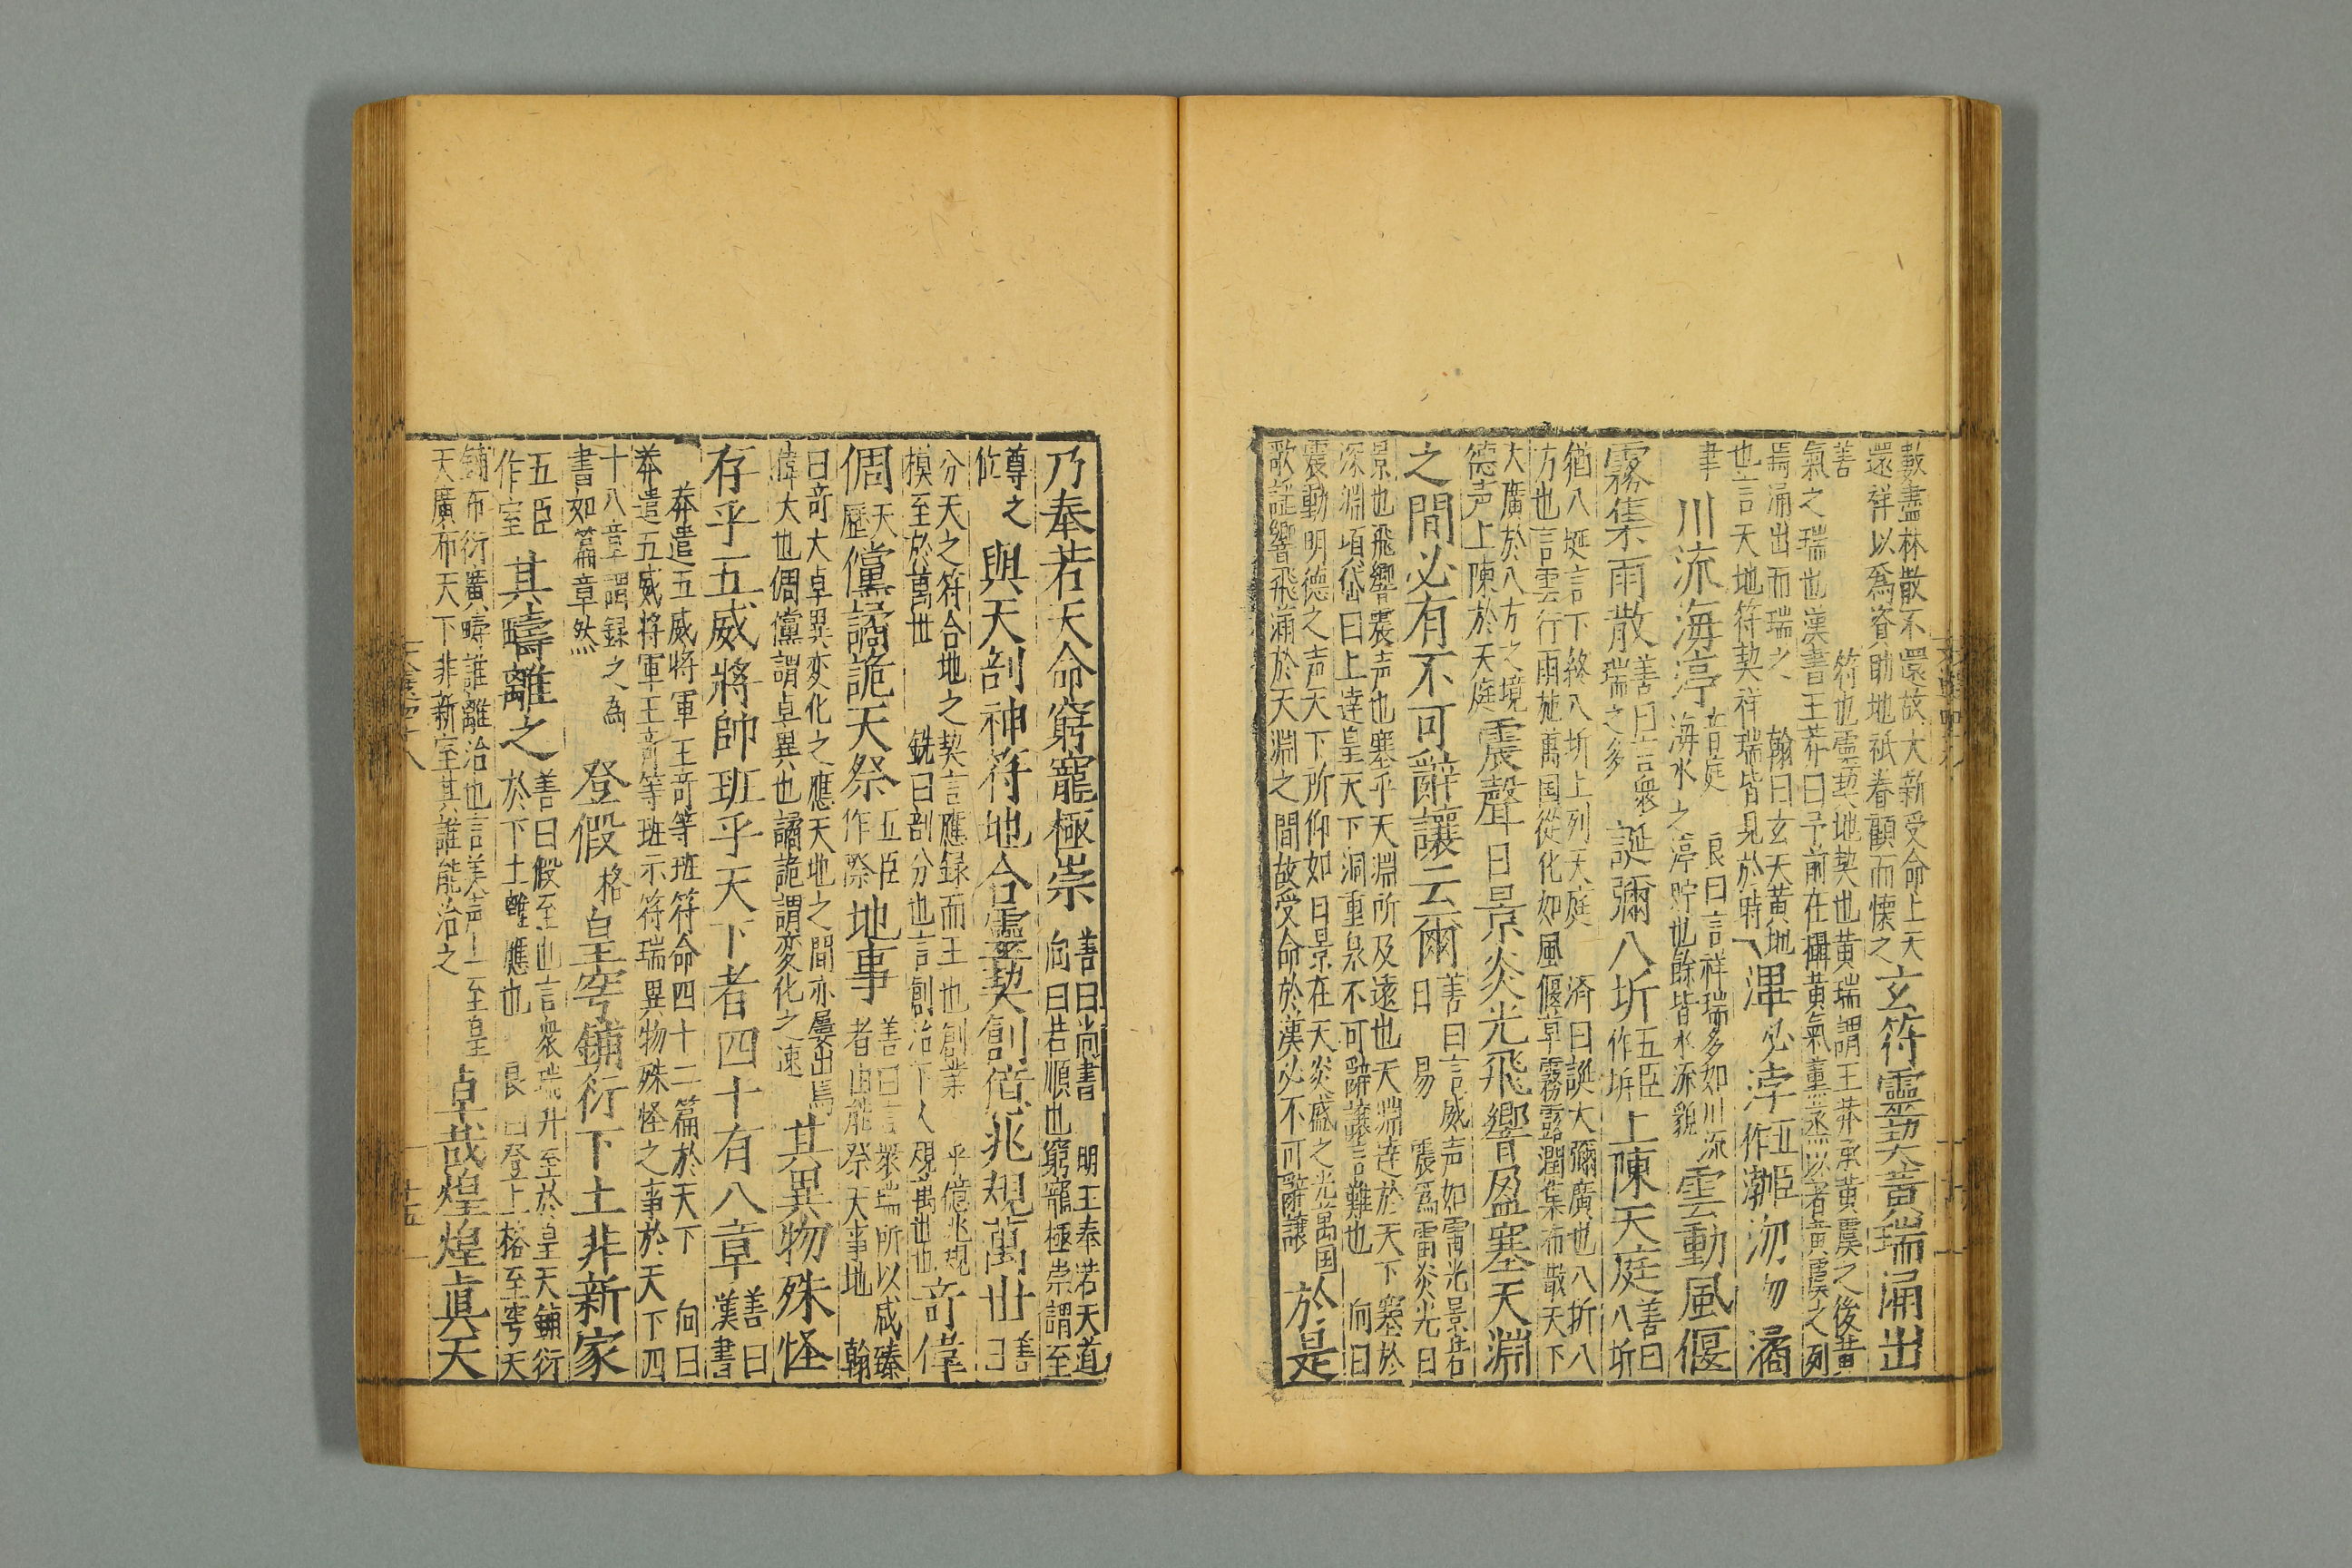 數盡林散不還故大新受命上天
還祥以爲資助地祇眷顧而懷之玄符靈契黃瑞涌出
善符也靈契地契也黃瑞謂王莽承黃虞之後黃
氣之瑞也漢書王莽曰予前在攝黃氣熏蒸以著黃虞之列
焉涌出而瑞之 翰曰玄天黃地
也言天地符契祥瑞皆見於時 滭必浡五臣作渤沕勿潏
聿川流海渟音庭 良曰言祥瑞多如川流
海水之渟貯也餘皆水流貌雲動風偃
霧集雨散善曰言衆瑞之多誕彌八圻五臣作垠上陳天庭善曰八圻
猶八埏言下終八圻上列天庭 濟曰誕大彌廣也八圻八
方也言雲行雨施萬国從化如風偃草霧露潤集布散天下
大廣於八方之境
德声上陳於天庭震聲日景炎光飛響盈塞天淵
之間必有不可辭讓云爾善曰言威声如雷光景若
日 易 震爲雷炎光日
景也飛響震声也塞乎天淵所及遠也天淵達於天下塞於
深淵項岱曰上達皇天下洞重泉不可辭讓言難也 向曰
震動明德之声天下所仰如日景在天炎盛之光萬国
歌謡響飛涌於天淵之間故受命於漢必不可辭讓於是
乃奉若天命窮寵極崇善曰尚書 明王奉若天道
向曰若順也窮寵極崇謂至
尊之位與天剖神符地合靈契創億兆規萬世善曰
分天之符合地之契言應録而王也創業乎億兆規
模至於萬世 銑曰剖分也言創治下人規萬世也奇偉
倜天歷儻譎詭天祭五臣作際地事善曰言衆瑞所以咸臻
者由能祭天事地 翰
曰奇大卓異变化之應天地之間亦屢出焉
偉大也倜儻謂卓異也譎詭謂变化之速其異物殊怪
存乎五威將帥班乎天下者四十有八章善曰漢書
莽遣五威將軍王奇等班符命四十二篇於天下 向曰
莽遣五威将軍王奇等班示符瑞異物殊怪之事於天下四
十八章謂録之為
書如篇章然登假格皇穹鋪衍下土非新家
五臣作室其疇離之善曰假至也言衆瑞升至於皇天鋪衍
於下土離應也 良曰登上格至穹天
鋪布衍廣疇誰離治也言美声上至皇
天廣布天下非新室其誰能治之卓哉煌煌眞天